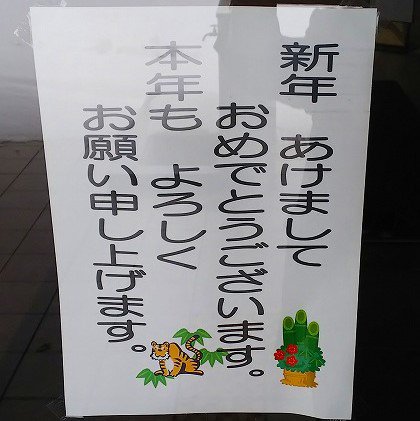 新年　あけまして
おめでとうございます。
本年も　よろしく
お願い申し上げます。